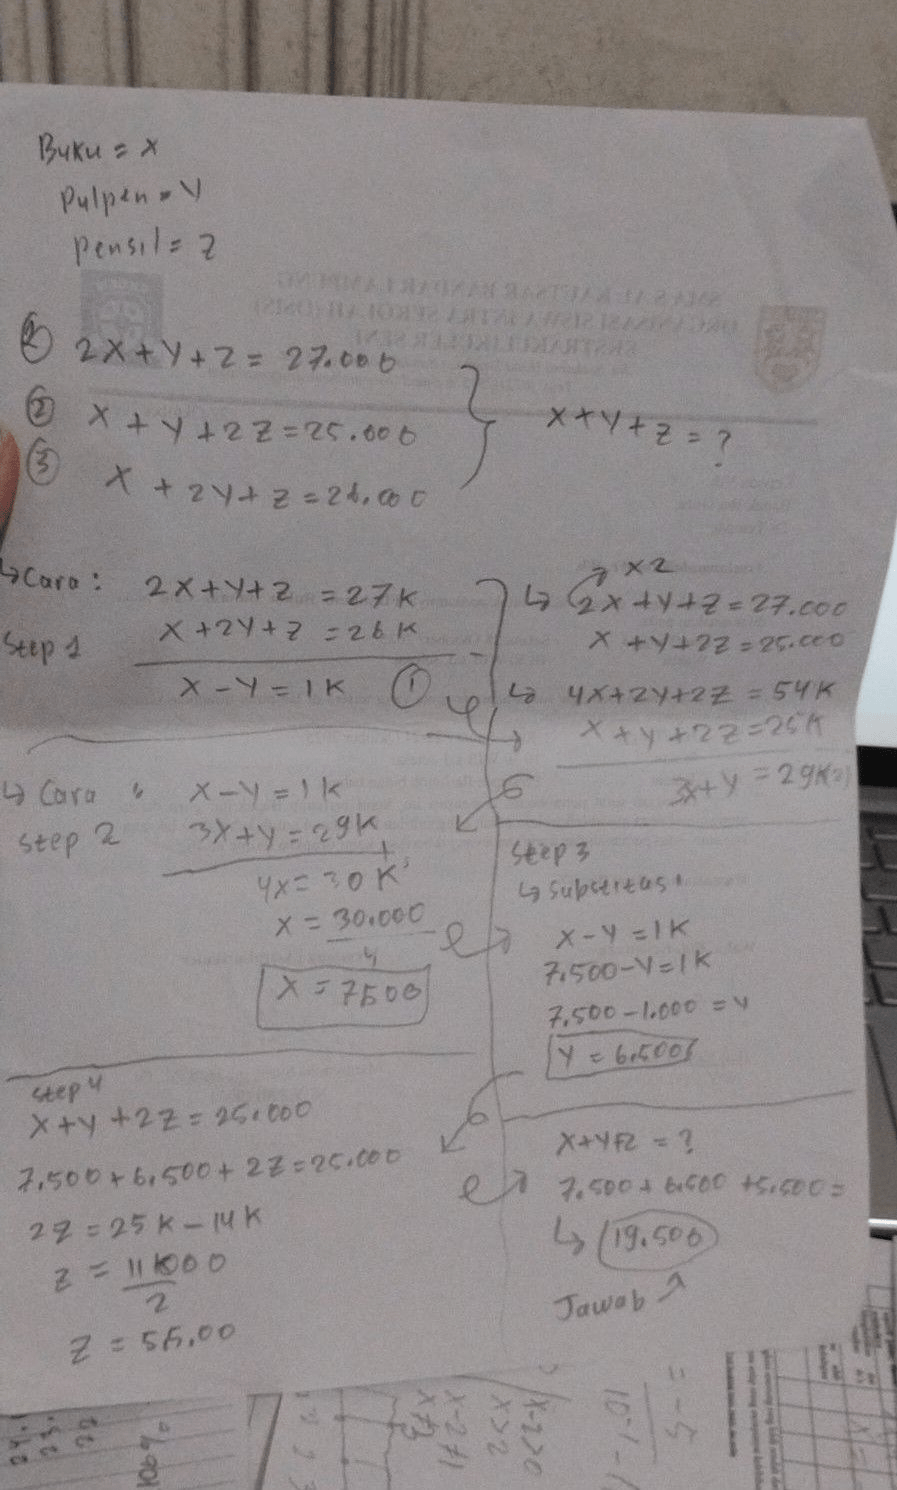 Buku = x
Pulpen = y
Pensil = z
2x + y + z = 27.000
② x + y + 2z = 25.000
③ x + 2y + z = 26.000
x + y + z = ?
↳ Cara : 2x + y + z = 27k
Step 1 x + 2y + z = 26k
x - y = 1k ①
x2
↳ 2x + y + z = 27.000
x + y + 2z = 25.000
↳ 4x + 2y + 2z = 54k
x + y + 2z = 25k
3x + y = 29k
↳ Cara : x - y = 1k
Step 2 3x + y = 29k
+
4x = 30k
x = 30.000
4
x = 7500
Step 3
↳ Substitusi
x - y = 1k
7.500 - y = 1k
7.500 - 1.000 = y
y = 6.500
Step 4
x + y + 2z = 25.000
7.500 + 6.500 + 2z = 25.000
2z = 25k - 14k
z = 11000
2
z = 55.00
x + y + z = ?
7.500 + 6.500 + 5.500 =
↳ 19.500
Jawab
SMAS AL KAUTSAR BANDAR LAMPUNG
ORGANISASI SISWA INTRA SEKOLAH (OSIS)
EKSTRAKULIKULER SENI
106%
x-2>0
x>2
x-2≠1
x≠3
10-1
= -5